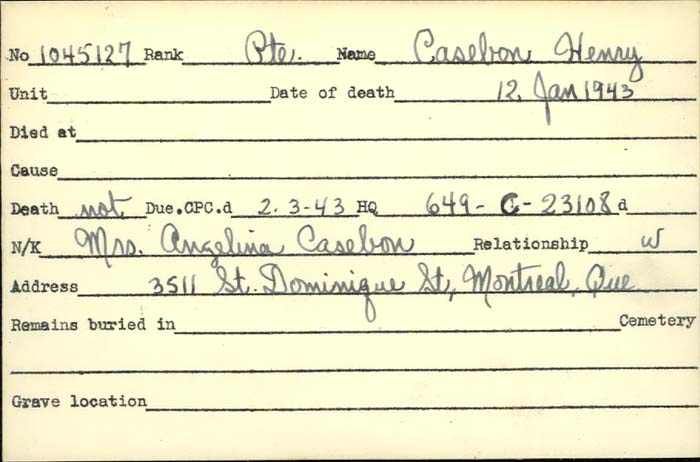 No 1045127 Rank Pte. Name Casebon Henry
Unit Date of death 12 Jan 1943
Died at
Cause
Death not Due.CPC.d 2-3-43 HQ 649-C-23108 d
N/K Mrs. Angelina Casebon Relationship W
Address 3511 St. Dominique St, Montreal, Que
Remains buried in Cemetery
Grave location